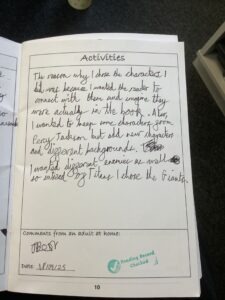 Activities
The reason why I chose the characters I
did was because I wanted the reader to
connect with them and imagine they
were actually in the book. Also,
I wanted to keep some characters from
Percy Jackson but add new characters
and different backgrounds.
I wanted different enemies as well
so instead of Titans I chose the Giants.
Comments from an adult at home:
DATE:
Reading Record
Checked
10